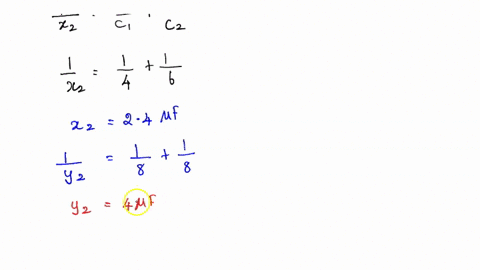 x₂ c₁ · c₂
1/x₂ = 1/4 + 1/6
x₂ = 2.4 μf
1/y₂ = 1/8 + 1/8
y₂ = 4μf